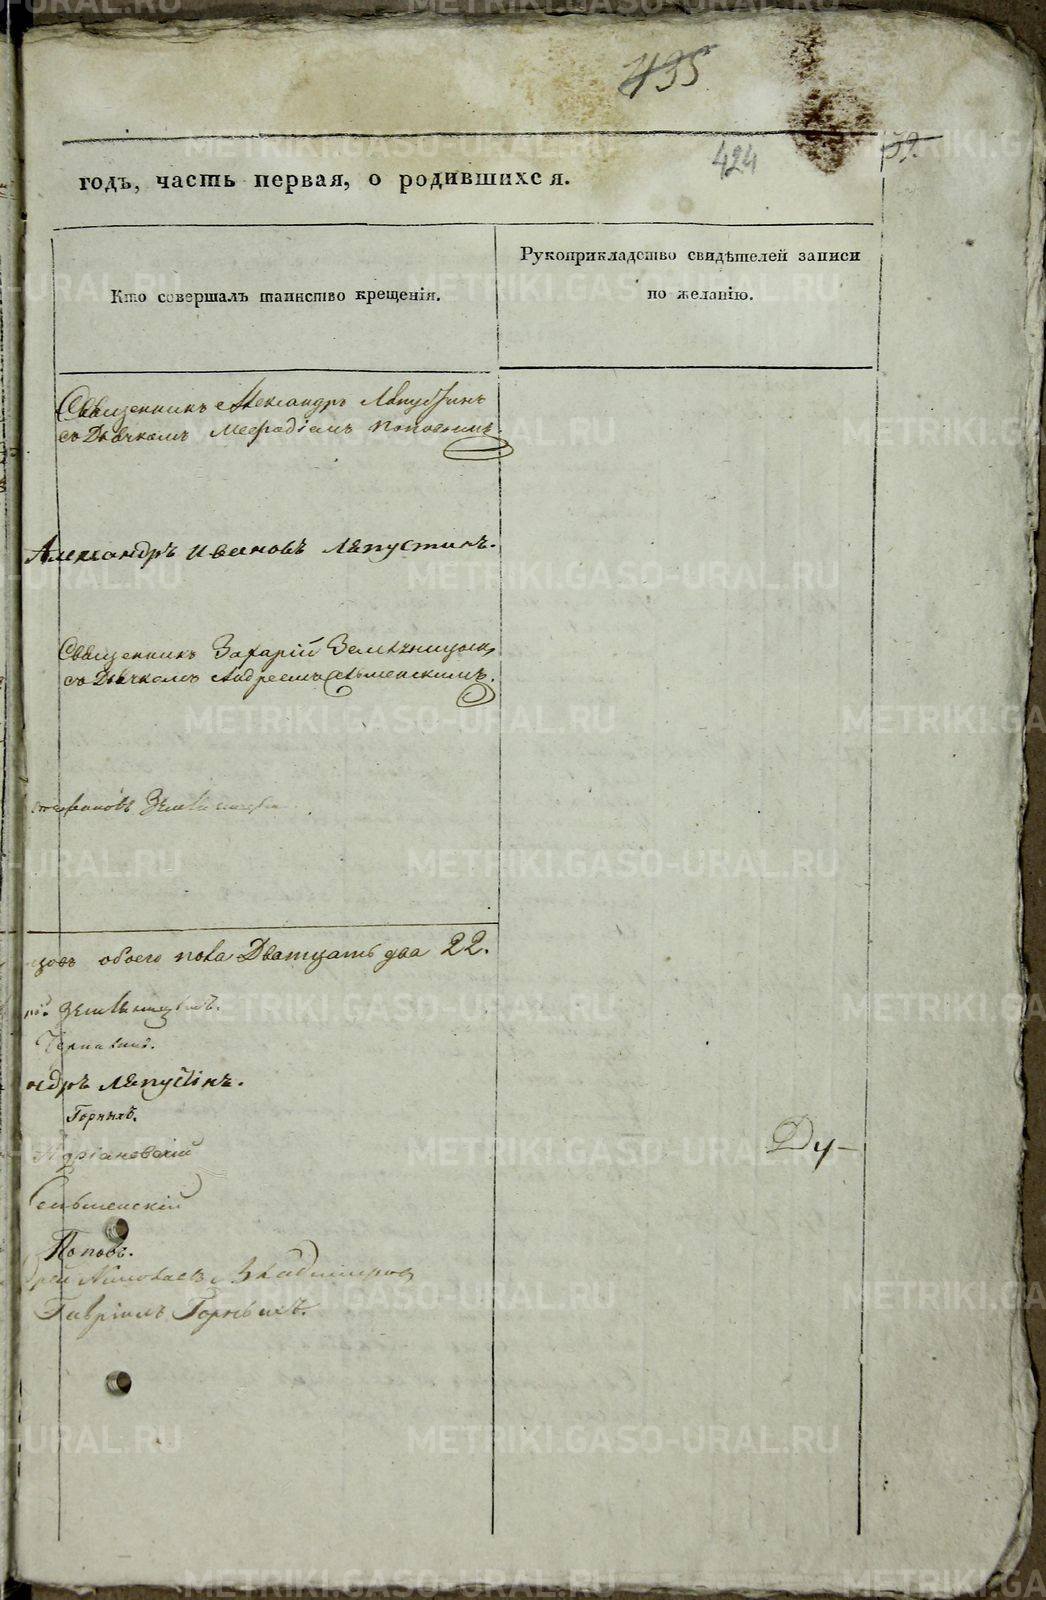 435
424
39.
годъ, часть первая, о родившихся.
Кто совершалъ таинство крещенія.
Рукоприкладство свидѣтелей записи
по желанію.
Священникъ Александръ Ляпустинъ
съ Дьячкомъ Мефодіемъ Поповымъ.
Александръ Ивановъ Ляпустинъ.
Священникъ Захарій Земляницынъ
съ Дьячкомъ Андреемъ Сельменскимъ.
обоего пола Дватцать два 22.
Земляницынъ.
ндръ Ляпустинъ.
Горныхъ.
Адріановскій
Сельменскій
Поповъ.
рей Николаевъ Владимиров
Гавріилъ Горныхъ.
Ду-
METRIKI.GASO-URAL.RU